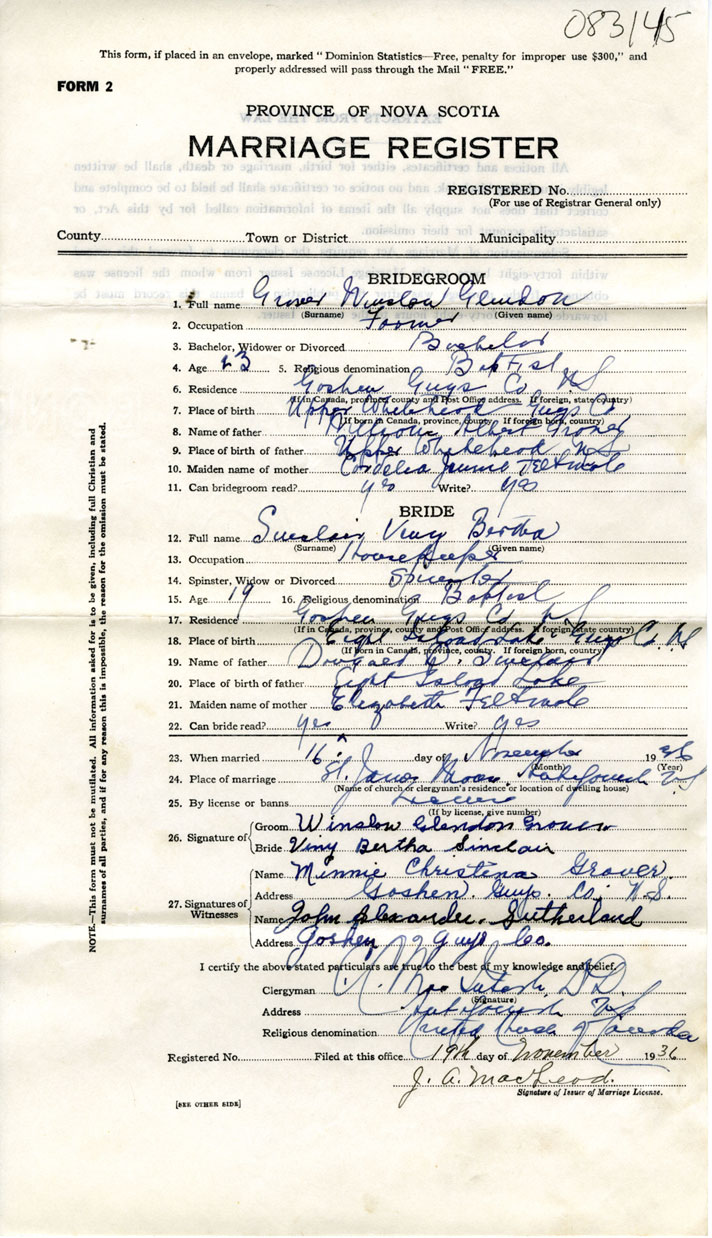 083145
This form, if placed in an envelope, marked "Dominion Statistics—Free, penalty for improper use $300," and
properly addressed will pass through the Mail "FREE."
FORM 2
PROVINCE OF NOVA SCOTIA
MARRIAGE REGISTER
REGISTERED No.
(For use of Registrar General only)
County Town or District Municipality
BRIDEGROOM
1. Full name Grover Winslow Glendon
(Surname) (Given name)
2. Occupation Farmer
3. Bachelor, Widower or Divorced Bachelor
4. Age 23 5. Religious denomination Baptist
6. Residence Goshen Guys Co NS
(If in Canada, province, county and Post Office address. If foreign, state country)
7. Place of birth Upper Whitehead Guys Co
(If born in Canada, province, county. If foreign born, country)
8. Name of father Albert Grover
9. Place of birth of father Upper Whitehead NS
10. Maiden name of mother Cordelia Jennie Feltmate
11. Can bridegroom read? yes Write? yes
BRIDE
12. Full name Sinclair Viny Bertha
(Surname) (Given name)
13. Occupation Housekeeper
14. Spinster, Widow or Divorced Spinster
15. Age 19 16. Religious denomination Baptist
17. Residence Goshen Guys Co NS
(If in Canada, province, county and Post Office address. If foreign state country)
18. Place of birth Eight Island Lake Guys Co. NS
(If born in Canada, province, county. If foreign born, country)
19. Name of father Dougald D. Sinclair
20. Place of birth of father Eight Island Lake
21. Maiden name of mother Elizabeth Feltmate
22. Can bride read? yes Write? yes
23. When married 16 day of November 1936
(Month) (Year)
24. Place of marriage St. James Manse, Antigonish N.S
(Name of church or clergyman's residence or location of dwelling house)
25. By license or banns License
(If by license, give number)
26. Signature of Groom Winslow Glendon Grover
Bride Viny Bertha Sinclair
27. Signatures of Witnesses Name Minnie Christena Grover.
Address Goshen. Guys. Co. N.S.
Name John Alexander. Sutherland
Address Goshen Guys Co.
I certify the above stated particulars are true to the best of my knowledge and belief.
Clergyman MacIntosh, D.D.
(Signature)
Address Antigonish NS
Religious denomination United Church of Canada
Registered No. Filed at this office 19th day of November 1936
J. A. MacLeod.
Signature of Issuer of Marriage License.
[SEE OTHER SIDE]
NOTE.—This form must not be mutilated. All information asked for is to be given, including full Christian and
surnames of all parties, and if for any reason this is impossible, the reason for the omission must be stated.